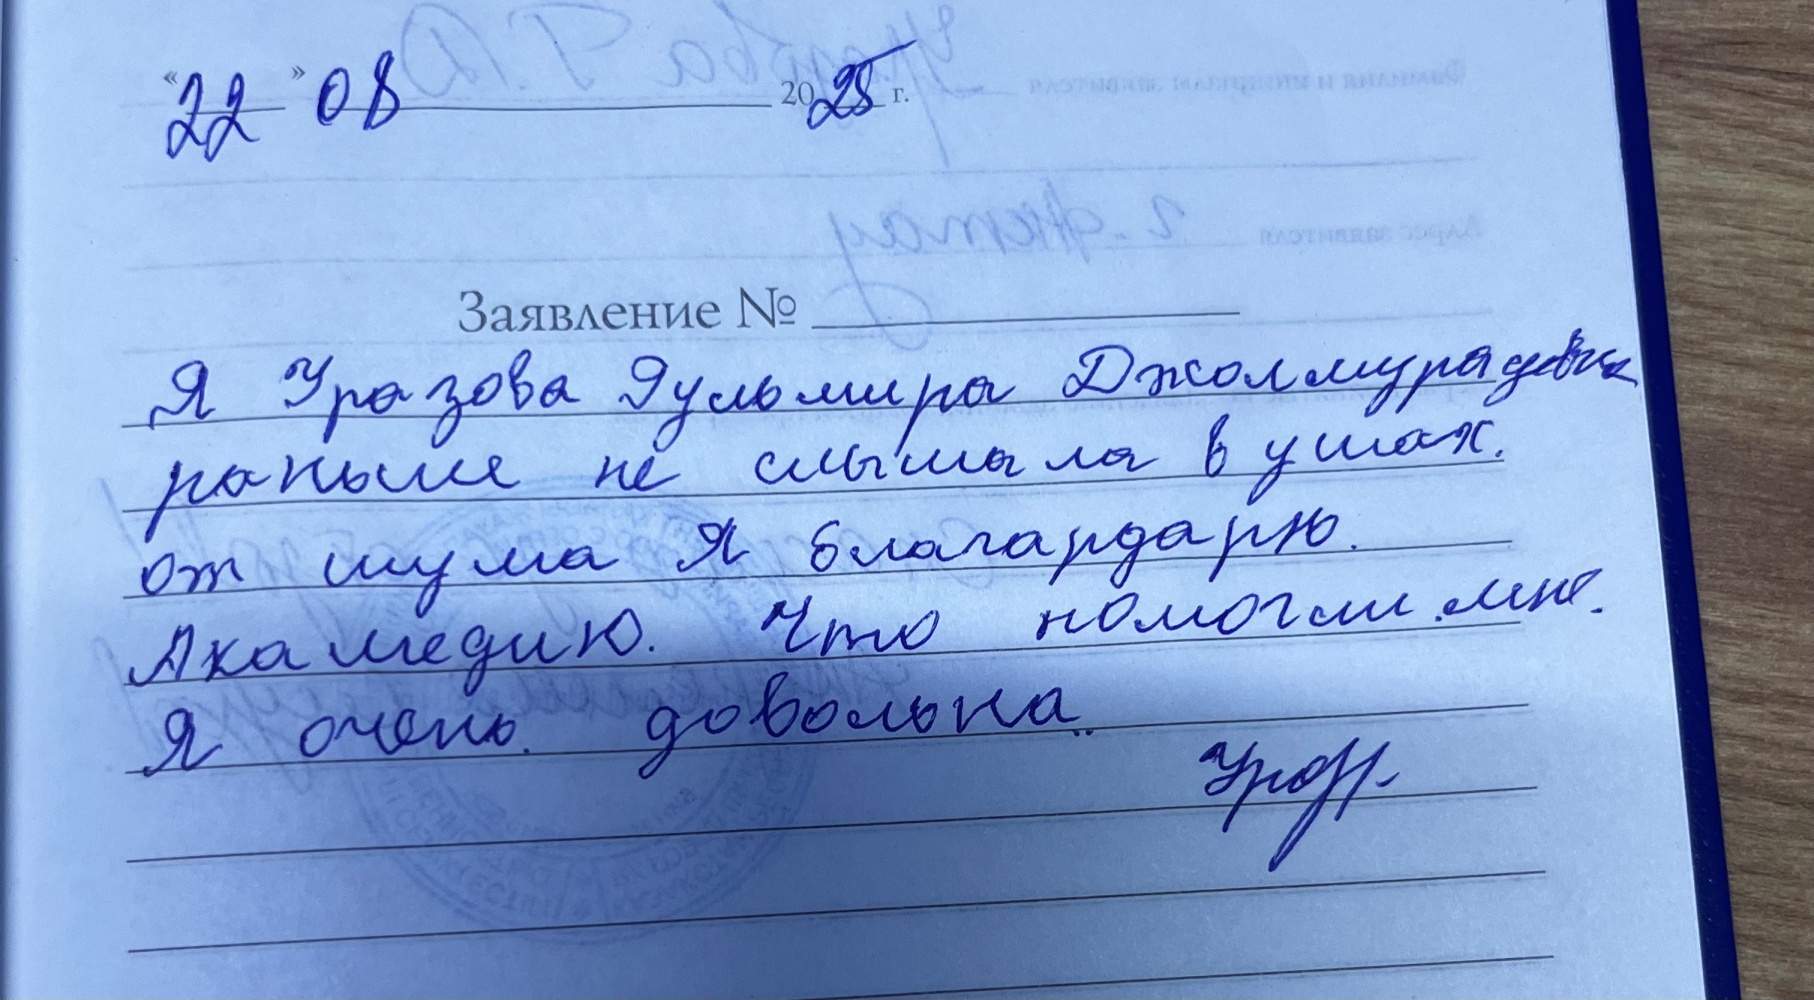 «22» 08 2025 г.
Заявление №
Я Уразова Гульмира Джолмурадовна
раньше не слышала в ушах.
от шума Я благардарю.
Акамедию. Что помогли мне.
Я очень довольна..